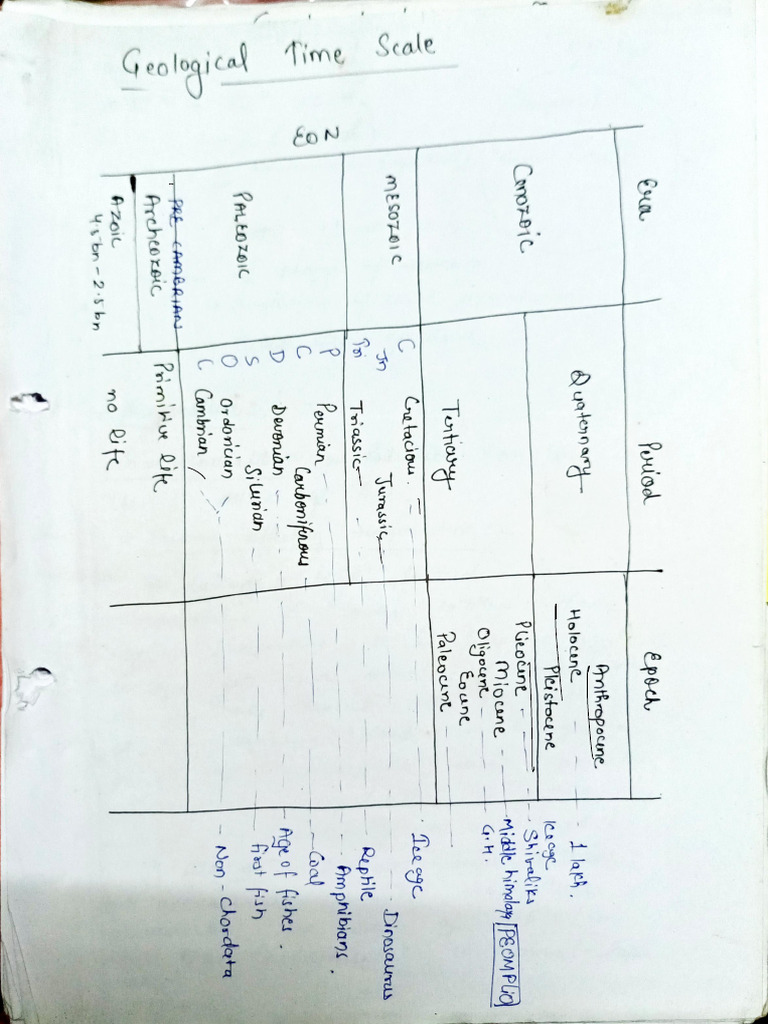 Geological Time Scale
EON
Era Period Epoch
Conozoic
Quaternary
Anthropocene
Holocene - - - 1 lakh.
Pleistocene Ice age
Tertiary
Pliocene - - - Shivaliks
Miocene - - Middle himalaya PEOMPlio
Oligocene - - - G.H.
Eocene
Paleocene
MESOZOIC
C Cretacious - - - Ice age
Jn Jurassic - - - Dinosaurus
Tri Triassic - - - Reptile
PALEOZOIC
P Permian - - - Amphibians.
C Carboniferous - - - Coal
D Devonian - - - Age of fishes.
S Silurian - - - first fish
O Ordorician - - - Non-Chordata
C Cambrian
PRE CAMBRIAN
Archeozoic Primitive life
Azoic no life
4.5bn-2.5bn